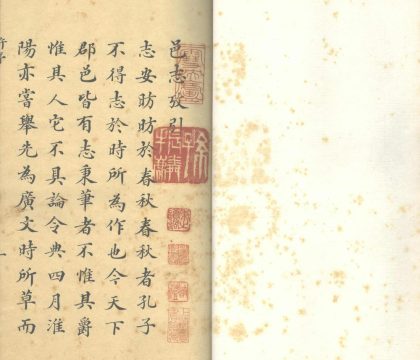 邑志攷引
志安昉昉於春秋春秋者孔子
不得志於時所為作也今天下
郡邑皆有志秉筆者不惟其爵
惟其人它不具論令典四月淮
陽亦嘗舉先為廣文時所草而
一